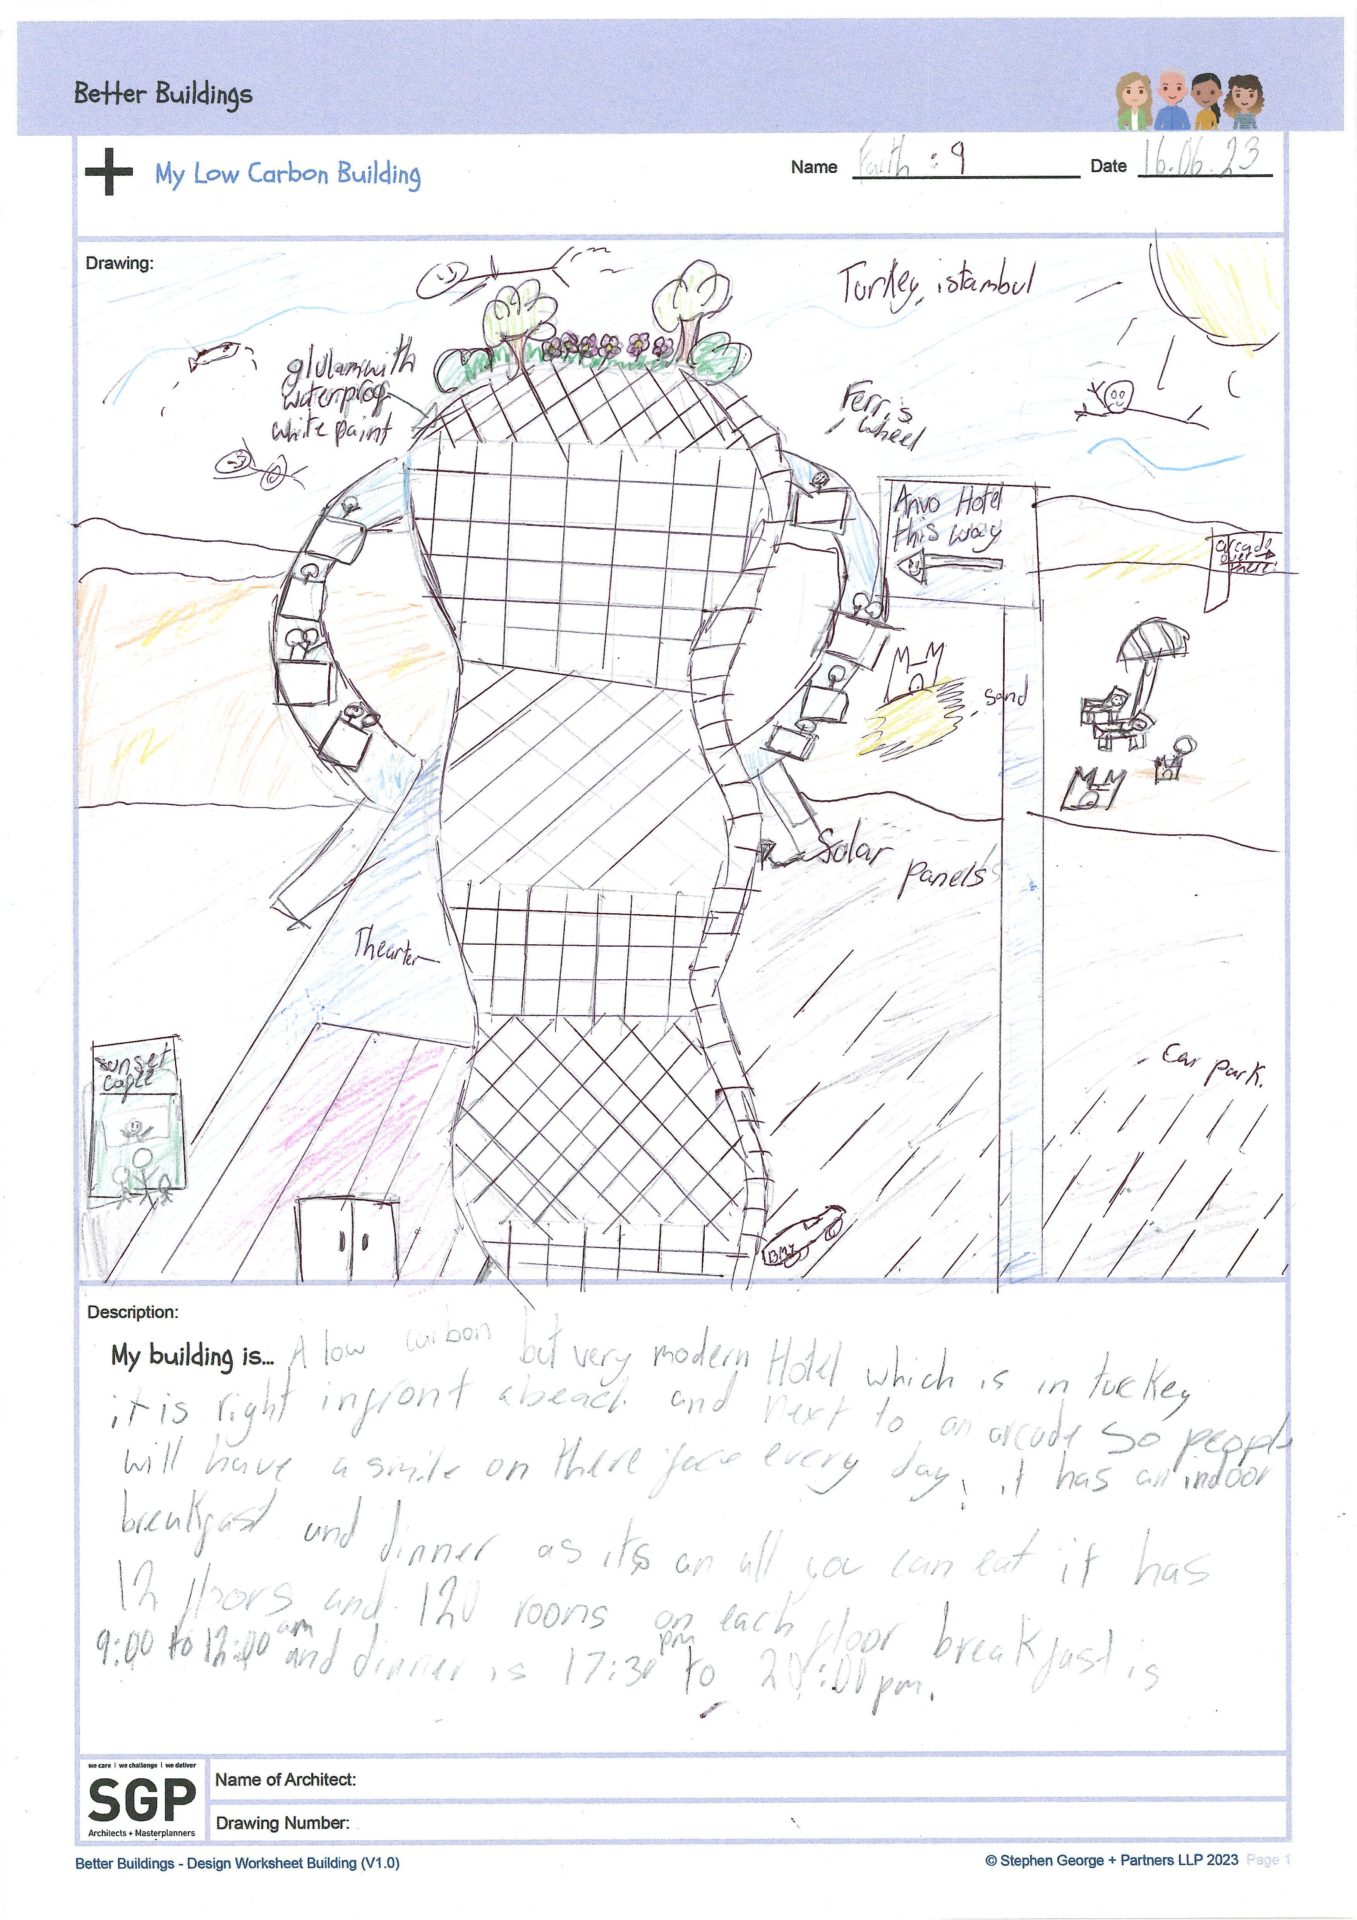 Better Buildings
My Low Carbon Building
Name Faith : 9 Date 16.06.23
Drawing:
Turkey, istanbul
glulam with
waterproof
white paint
Ferris
wheel
Anvo Hotel
this way
arcade
over
there
sand
Solar
panels
Thearter
sunset
caffe
car park.
BMX
Description:
My building is... A low carbon but very modern Hotel which is in turkey
it is right infront a beach and next to an arcade so people
will have a smile on there face every day, it has an indoor
breakfast and dinner as its an all you can eat it has
12 floors and 120 rooms on each floor breakfast is
9:00 to 12:00 am and dinner is 17:30 pm to 20:00 pm.
we care | we challenge | we deliver
SGP
Architects + Masterplanners
Name of Architect:
Drawing Number:
Better Buildings - Design Worksheet Building (V1.0)
© Stephen George + Partners LLP 2023 Page 1